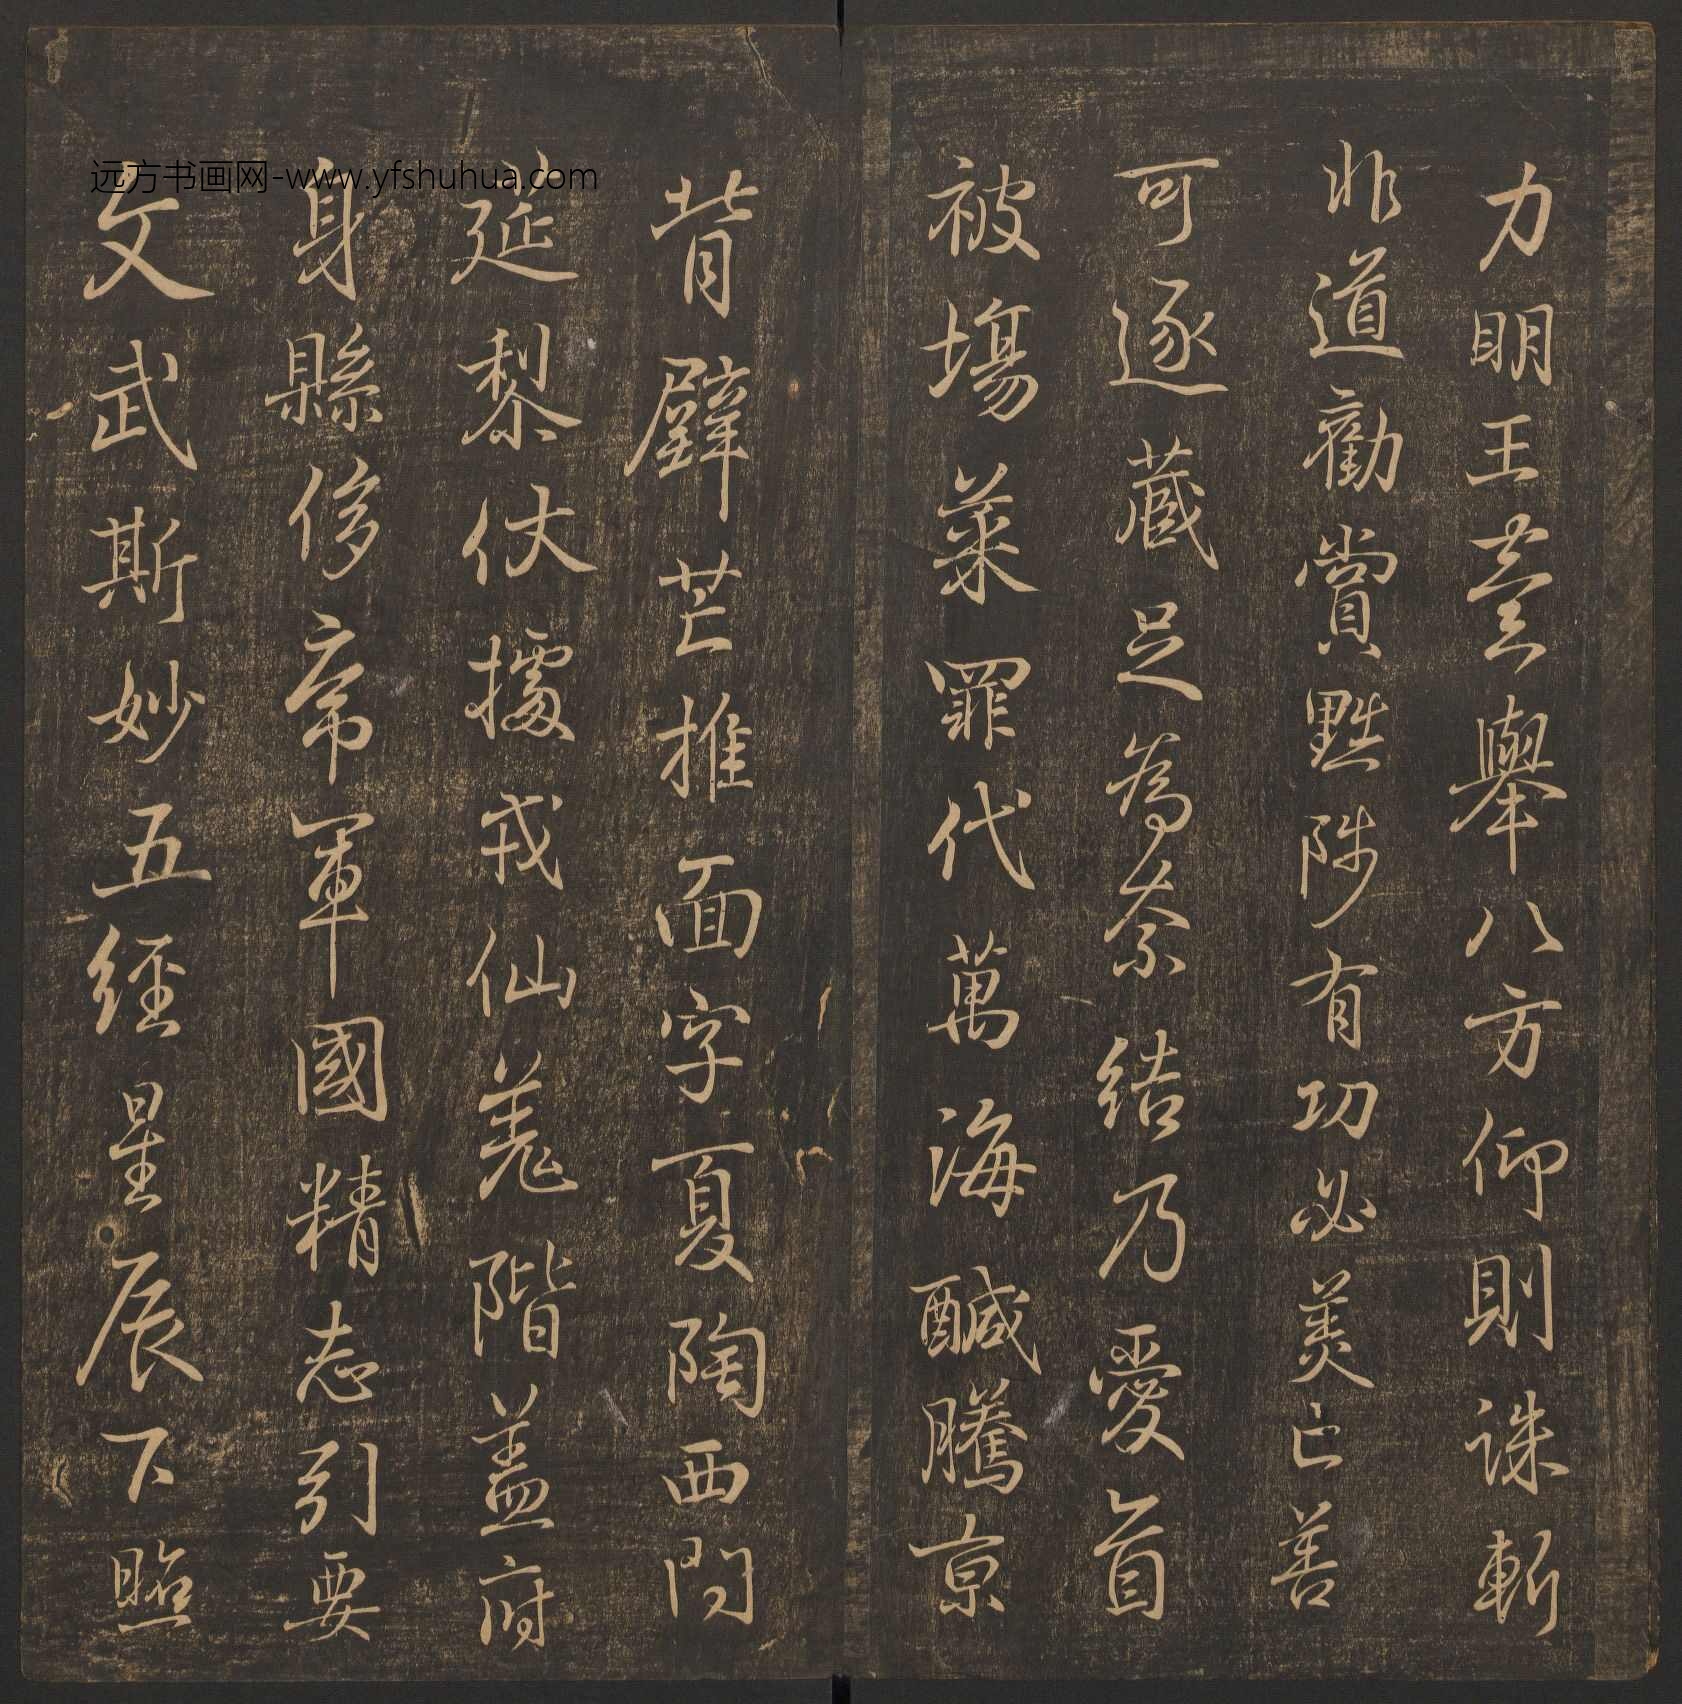 力明王臺舉八方仰則誅斬
非道勸賞黜陟有功必美亡善
可逐藏足為奈結乃愛首
被場菜罪代萬海醎騰京
背芒推面字夏陶西門
延黎伏據戎仙羗階蓋府
身縣侈帝軍國精志引要
文武斯妙五經星辰下照
远方书画网-www.yfshuhua.com